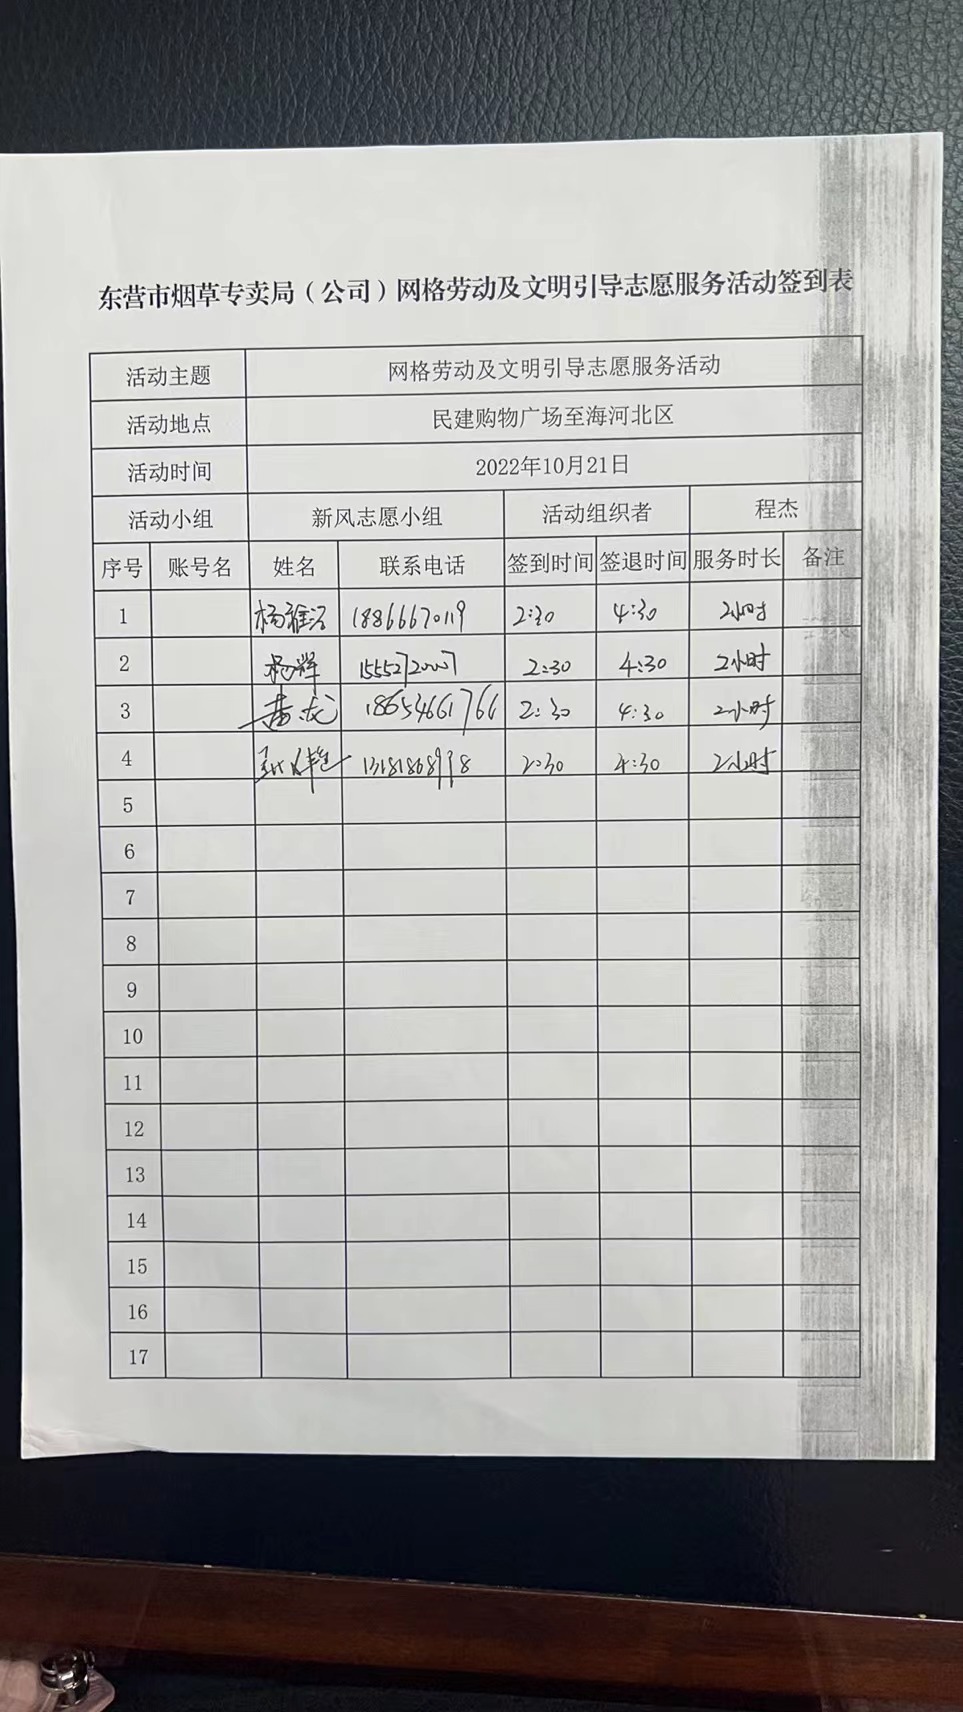 东营市烟草专卖局（公司）网格劳动及文明引导志愿服务活动签到表
活动主题 网格劳动及文明引导志愿服务活动
活动地点 民建购物广场至海河北区
活动时间 2022年10月21日
活动小组 新风志愿小组 活动组织者 程杰
序号 账号名 姓名 联系电话 签到时间 签退时间 服务时长 备注
1 18866670119 2:30 4:30 2小时
2 杨辉 15552720007 2:30 4:30 2小时
3 18654661766 2:30 4:30 2小时
4 2:30 4:30 2小时
5
6
7
8
9
10
11
12
13
14
15
16
17